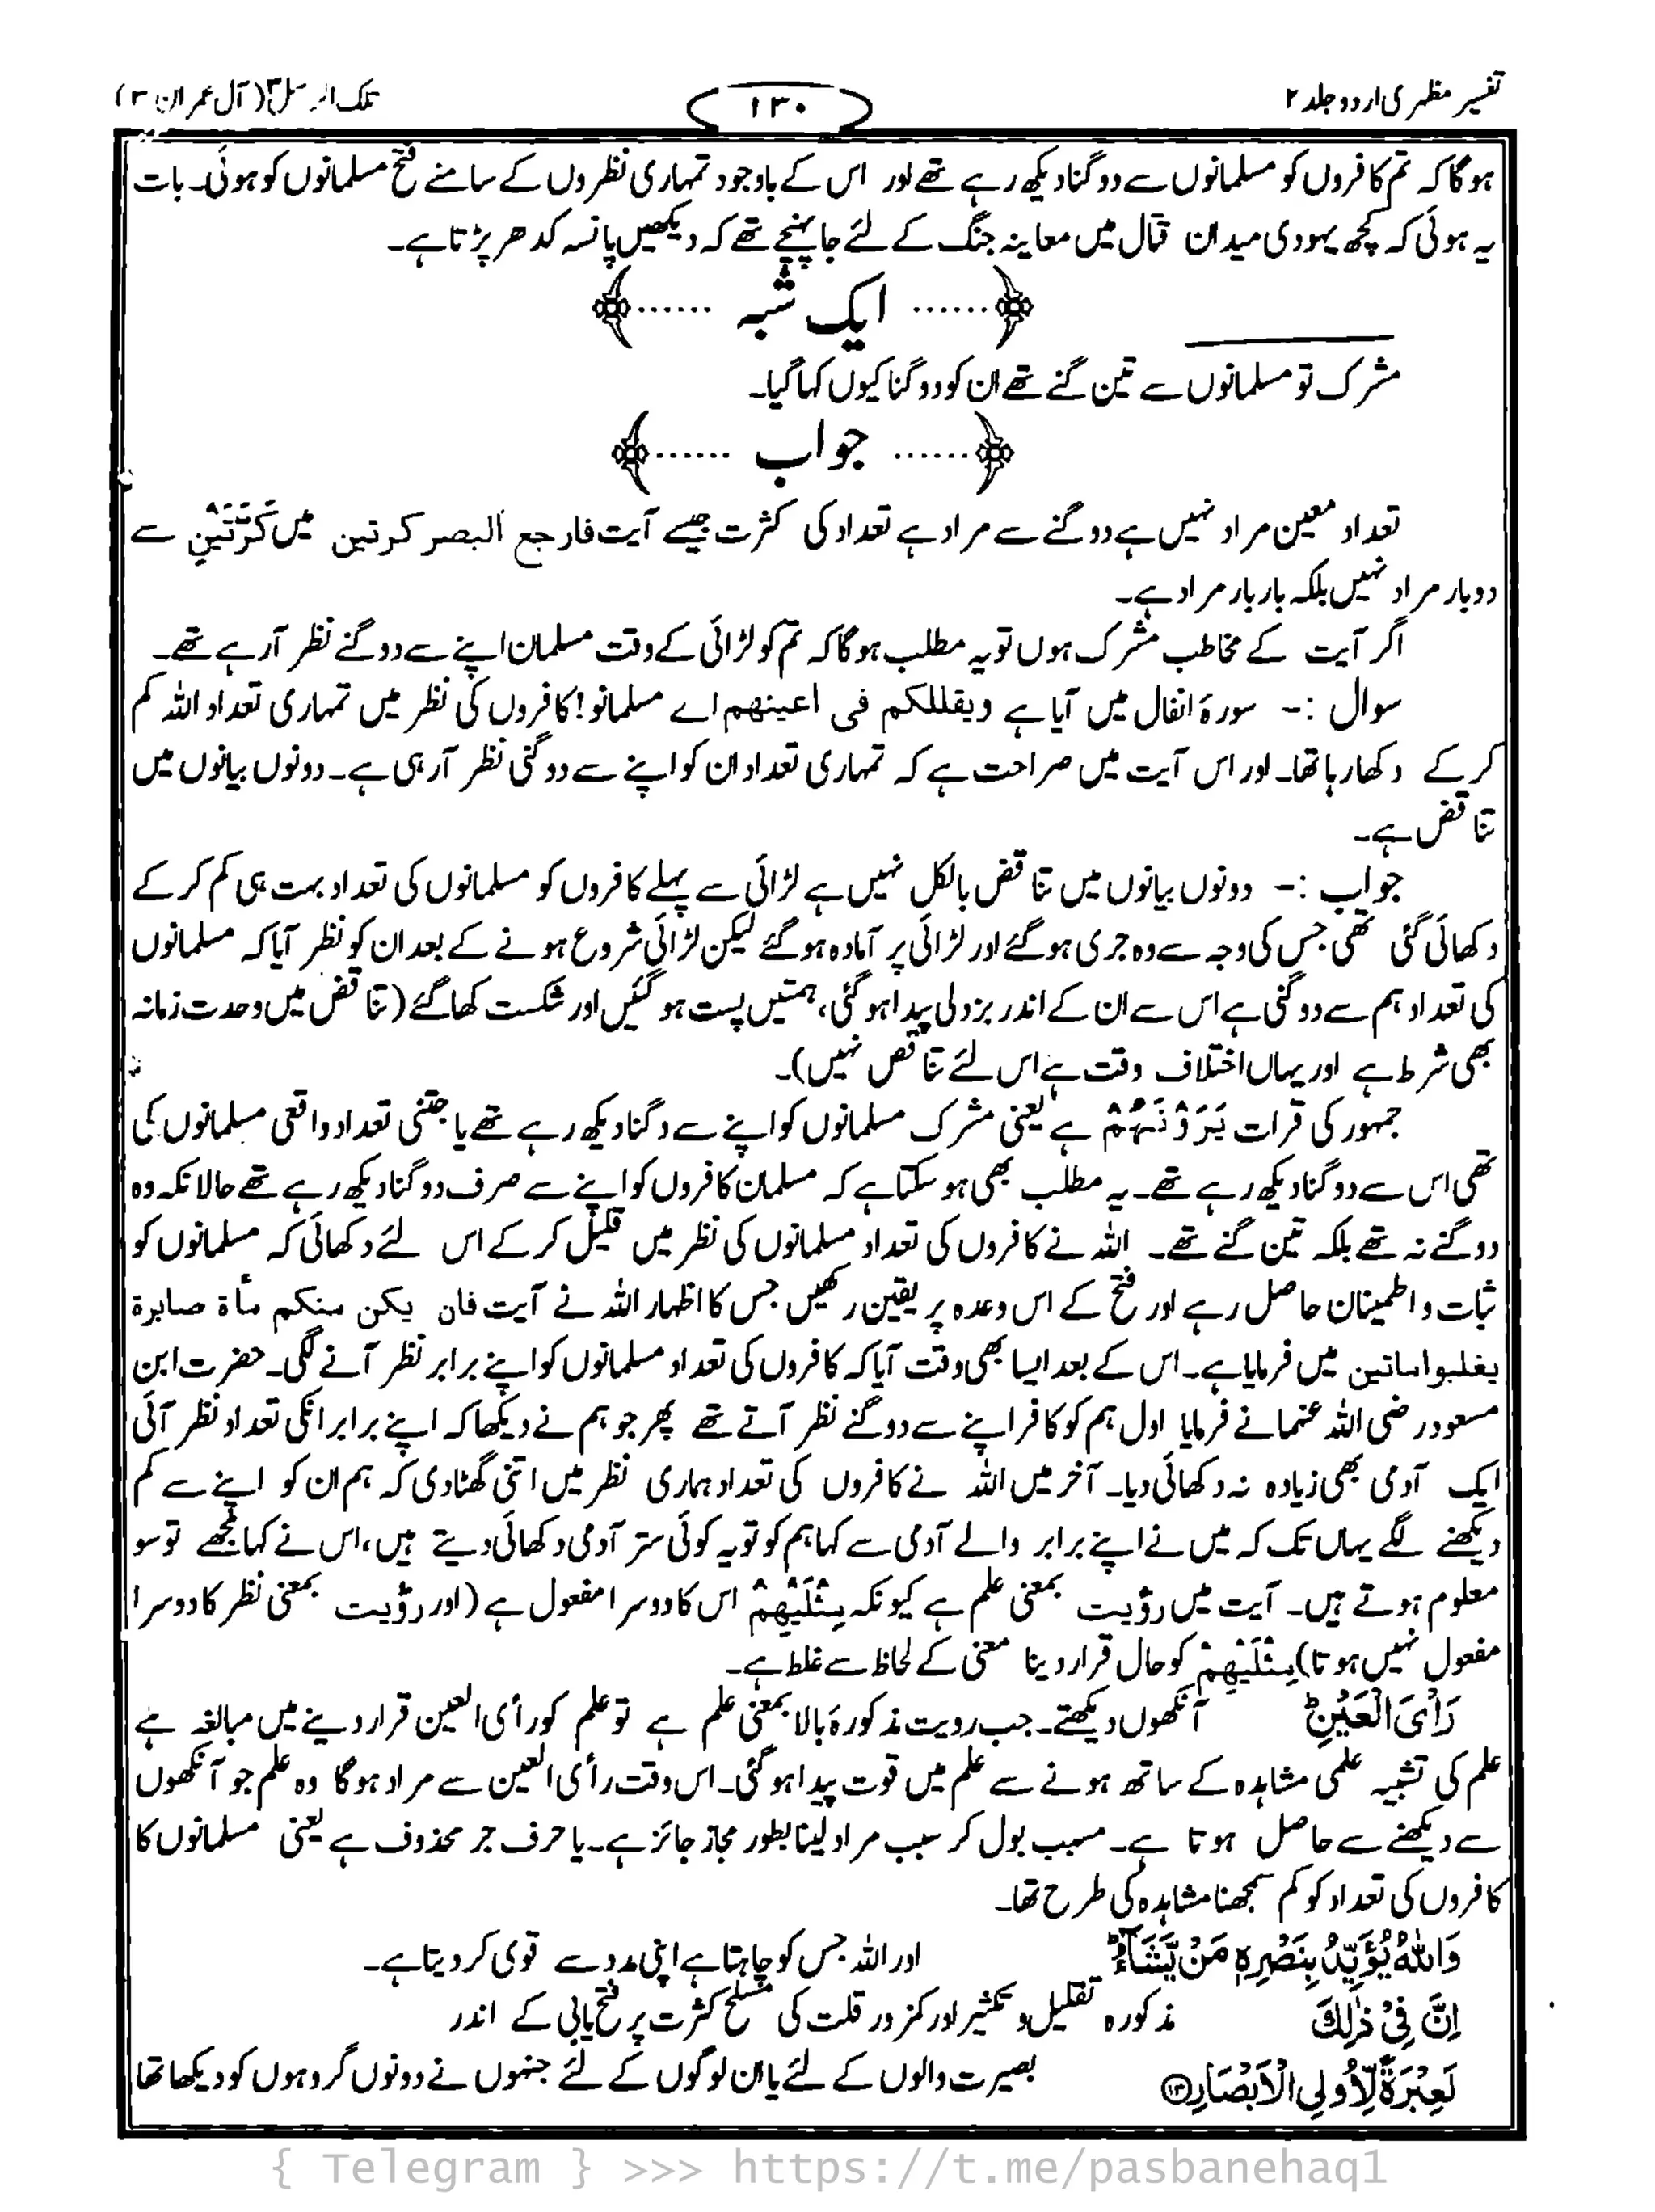 تفسیر مظہری اردو جلد ۲
۱۳۰
تلک الرسل ۳ (آل عمران ۳)
ہوگا کہ تم کافروں کو مسلمانوں سے دوگنا دیکھ رہے تھے اور اس کے باوجود تمہاری نظروں کے سامنے فتح مسلمانوں کو ہوئی۔ بات
یہ ہوئی کہ کچھ یہودی میدان قتال میں معاینہ جنگ کے لئے جا پہنچے تھے کہ دیکھیں پانسہ کدھر پڑتا ہے۔
...... ایک شبہ ......
مشرک تو مسلمانوں سے تین گنے تھے ان کو دوگنا کیوں کہا گیا۔
...... جواب ......
تعداد معین مراد نہیں ہے دوگنے سے مراد ہے تعداد کی کثرت جیسے آیت فارجع البصر کرتین میں کَرَّتَیْنِ سے
دوبار مراد نہیں بلکہ بار بار مراد ہے۔
اگر آیت کے مخاطب مشرک ہوں تو یہ مطلب ہوگا کہ تم کو لڑائی کے وقت مسلمان اپنے سے دوگنے نظر آرہے تھے۔
سوال :- سورۂ انفال میں آیا ہے ویقللکم فی اعینہم اے مسلمانو! کافروں کی نظر میں تمہاری تعداد اللہ کم
کر کے دکھا رہا تھا۔ اور اس آیت میں صراحت ہے کہ تمہاری تعداد ان کو اپنے سے دوگنی نظر آرہی ہے۔ دونوں بیانوں میں
تناقض ہے۔
جواب :- دونوں بیانوں میں تناقض بالکل نہیں ہے لڑائی سے پہلے کافروں کو مسلمانوں کی تعداد بہت ہی کم کر کے
دکھائی گئی تھی جس کی وجہ سے وہ جری ہوگئے اور لڑائی پر آمادہ ہوگئے لیکن لڑائی شروع ہونے کے بعد ان کو نظر آیا کہ مسلمانوں
کی تعداد ہم سے دوگنی ہے اس سے ان کے اندر بزدلی پیدا ہوگئی، ہمتیں پست ہوگئیں اور شکست کھا گئے (تناقض میں وحدت زمانہ
بھی شرط ہے اور یہاں اختلاف وقت ہے اس لئے تناقص نہیں)۔
جمہور کی قرات یَرَوْنَہُمْ ہے یعنی مشرک مسلمانوں کو اپنے سے دگنا دیکھ رہے تھے یا جتنی تعداد واقعی مسلمانوں کی
تھی اس سے دوگنا دیکھ رہے تھے۔ یہ مطلب بھی ہو سکتا ہے کہ مسلمان کافروں کو اپنے سے صرف دوگنا دیکھ رہے تھے حالانکہ وہ
دوگنے نہ تھے بلکہ تین گنے تھے۔ اللہ نے کافروں کی تعداد مسلمانوں کی نظر میں قلیل کر کے اس لئے دکھائی کہ مسلمانوں کو
ثبات و اطمینان حاصل رہے اور فتح کے اس وعدہ پر یقین رکھیں جس کا اظہار اللہ نے آیت فان یکن منکم مأۃ صابرۃ
یغلبوا ماتین میں فرمایا ہے۔ اس کے بعد ایسا بھی وقت آیا کہ کافروں کی تعداد مسلمانوں کو اپنے برابر نظر آنے لگی۔ حضرت ابن
مسعود رضی اللہ عنہما نے فرمایا اول ہم کو کافر اپنے سے دوگنے نظر آتے تھے پھر جو ہم نے دیکھا کہ اپنے برابر انکی تعداد نظر آئی
ایک آدمی بھی زیادہ نہ دکھائی دیا۔ آخر میں اللہ نے کافروں کی تعداد ہماری نظر میں اتنی گھٹا دی کہ ہم ان کو اپنے سے کم
دیکھنے لگے یہاں تک کہ میں نے اپنے برابر والے آدمی سے کہا ہم کو تو یہ کوئی ستر آدمی دکھائی دیتے ہیں، اس نے کہا مجھے تو سو
معلوم ہوتے ہیں۔ آیت میں رؤیت بمعنی علم ہے کیونکہ مِثْلَیْہِمْ اس کا دوسرا مفعول ہے (اور رؤیت بمعنی نظر کا دوسرا
مفعول نہیں ہوتا) مِثْلَیْہِمْ کو حال قرار دینا معنی کے لحاظ سے غلط ہے۔
رَاْیَ الْعَیْنِؕ آنکھوں دیکھتے۔ جب رویت مذکورۂ بالا بمعنی علم ہے تو علم کو رأی العین قرار دینے میں مبالغہ ہے
علم کی تشبیہ علمی مشاہدہ کے ساتھ ہونے سے علم میں قوت پیدا ہوگئی۔ اس وقت رأی العین سے مراد ہوگا وہ علم جو آنکھوں
سے دیکھنے سے حاصل ہوتا ہے۔ مسبب بول کر سبب مراد لینا بطور مجاز جائز ہے۔ یا حرف جر محذوف ہے یعنی مسلمانوں کا
کافروں کی تعداد کو کم سمجھنا مشاہدہ کی طرح تھا۔
وَاللّٰہُ یُؤَیِّدُ بِنَصْرِہٖ مَنْ یَّشَآءُؕ اور اللہ جس کو چاہتا ہے اپنی مدد سے قوی کر دیتا ہے۔
اِنَّ فِیْ ذٰلِکَ مذکورہ تقلیل و تکثیر اور کمزور قلت کی مسلح کثرت پر فتح یابی کے اندر
لَعِبْرَۃً لِّاُولِی الْاَبْصَارِ ۝۱۳ بصیرت والوں کے لئے یا ان لوگوں کے لئے جنہوں نے دونوں گروہوں کو دیکھا تھا
{ Telegram } >>> https://t.me/pasbanehaq1